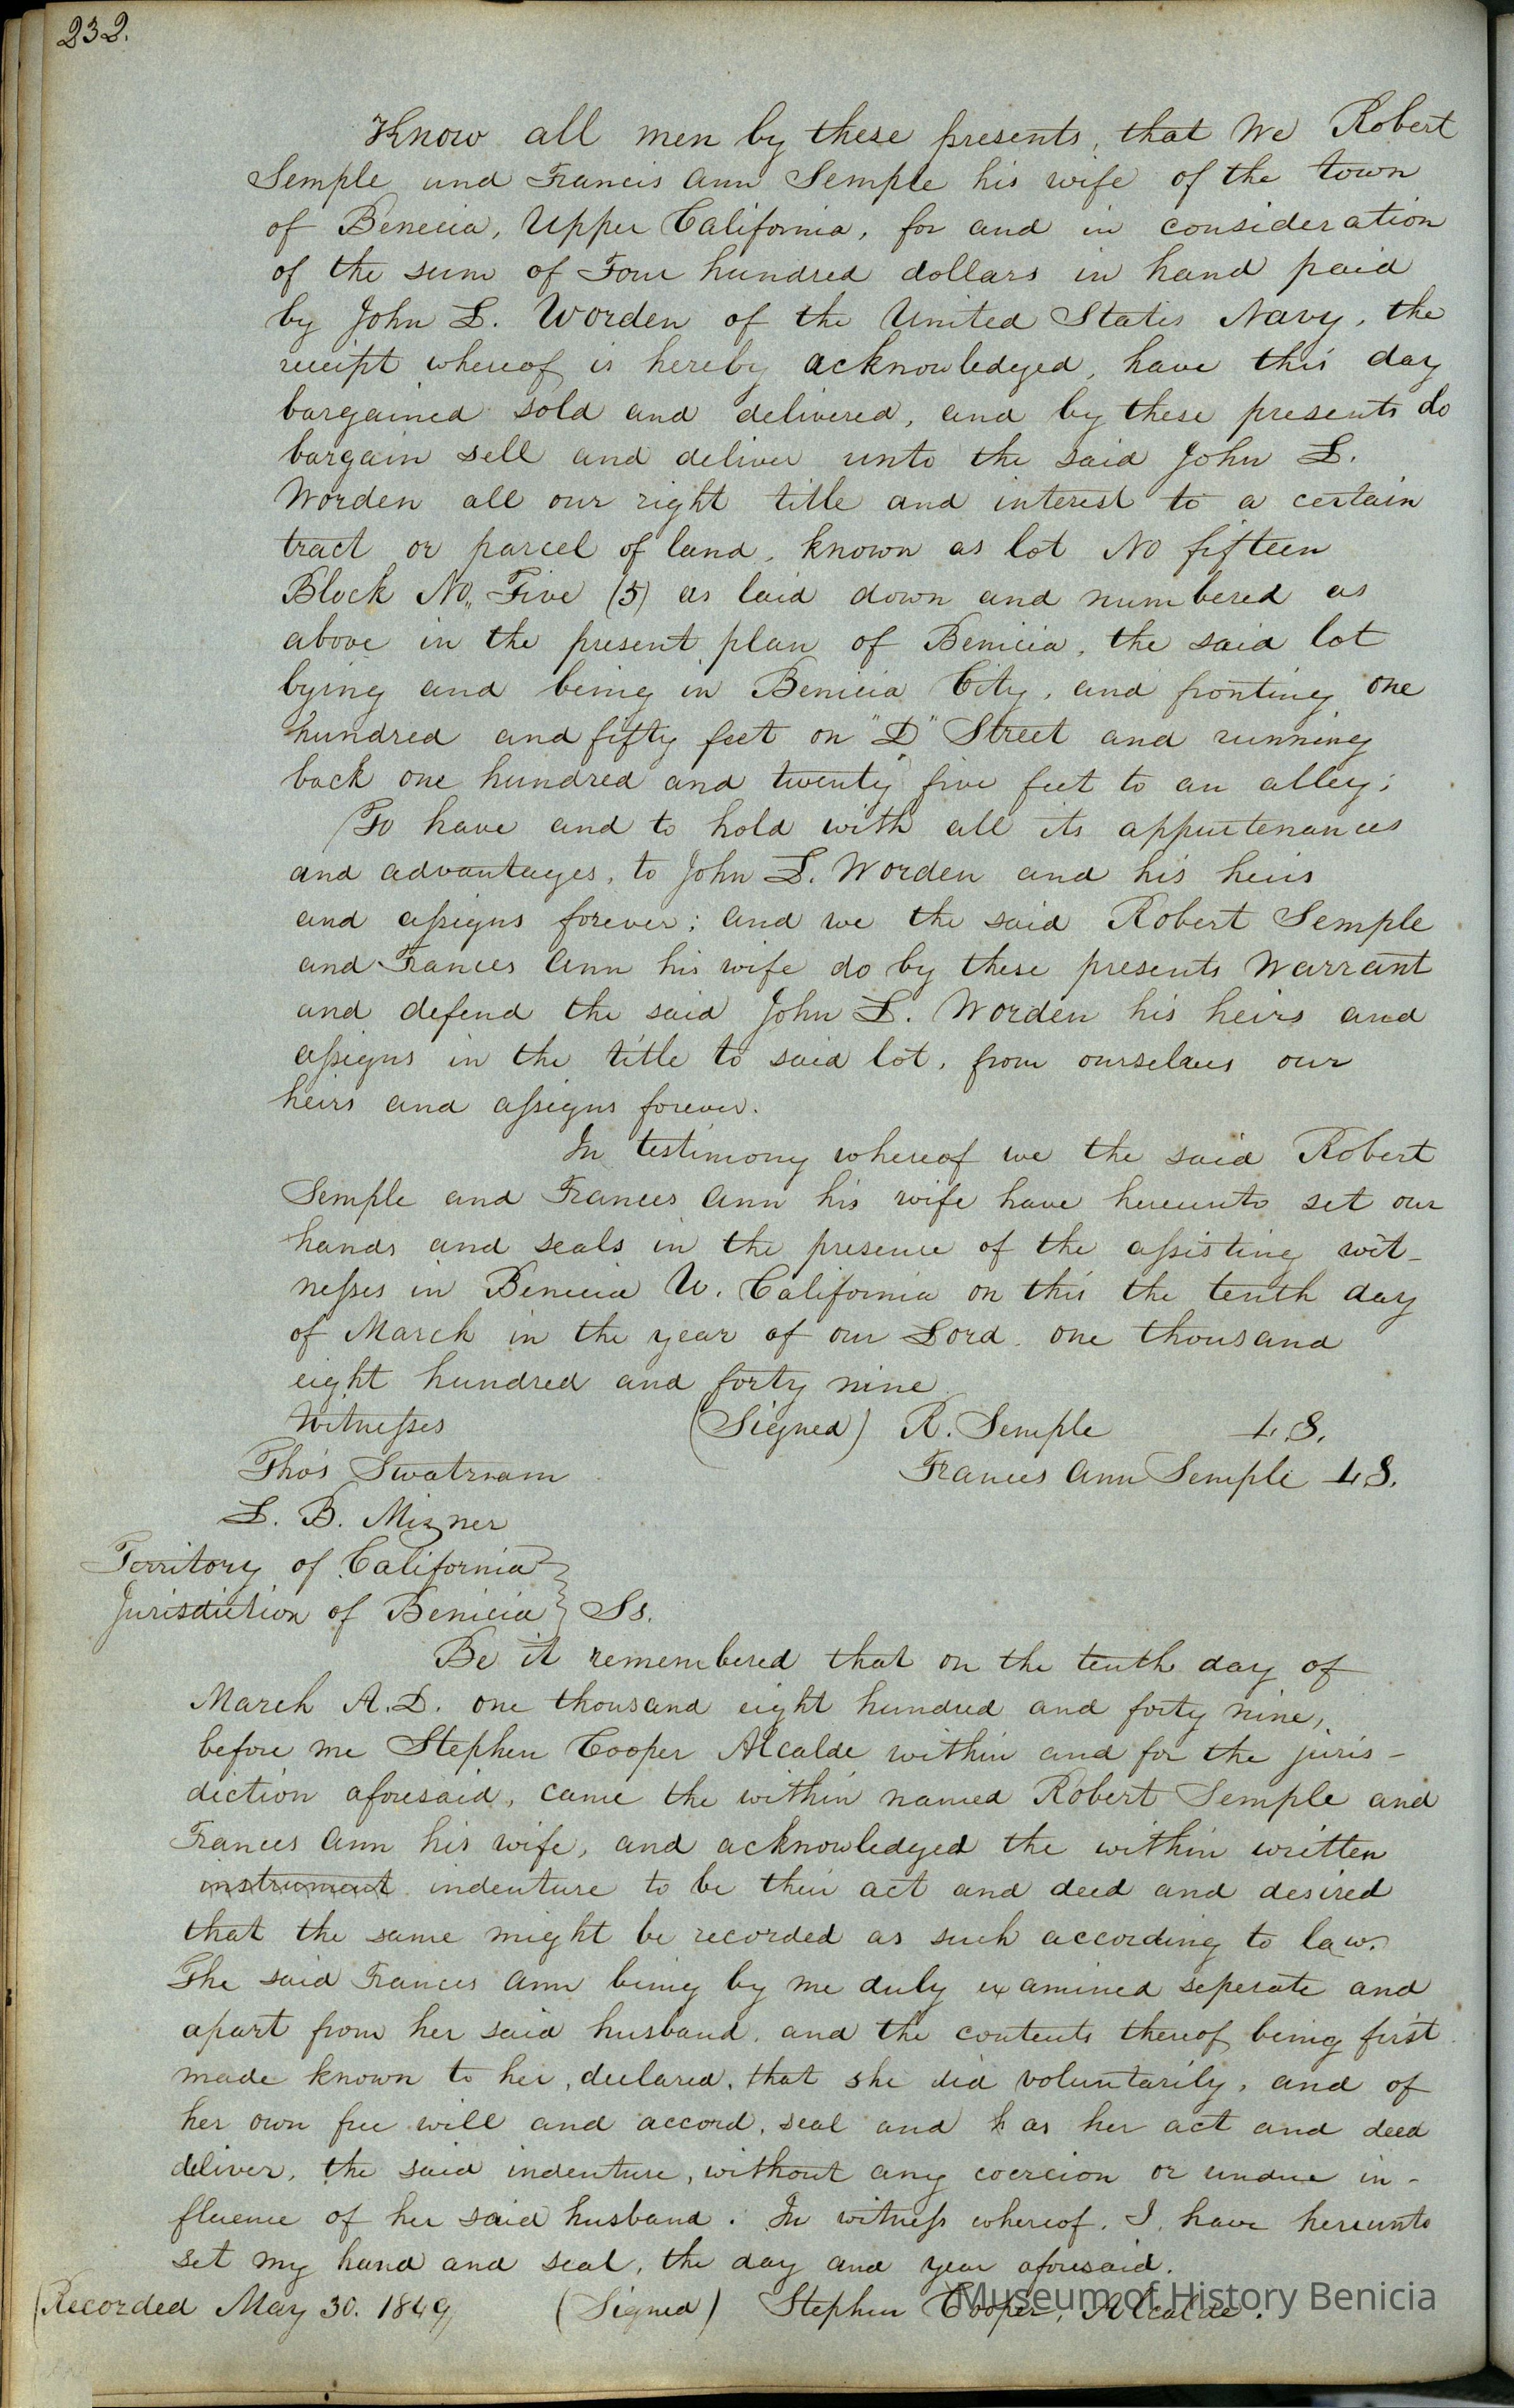 232.
Know all men by these presents, that We Robert
Semple and Francis Ann Semple his wife of the town
of Benecia, Upper California, for and in consideration
of the sum of Four hundred dollars in hand paid
by John L. Worden of the United States Navy, the
receipt whereof is hereby acknowledged, have this day
bargained sold and delivered, and by these presents do
bargain sell and deliver unto the said John L.
Worden all our right title and interest to a certain
tract or parcel of land, known as lot No fifteen
Block No,, Five (5) as laid down and numbered as
above in the present plan of Benicia, the said lot
lying and being in Benicia City, and fronting one
hundred and fifty feet on "D" Street and running
back one hundred and twenty five feet to an alley;
To have and to hold with all its appurtenances
and advantages, to John L. Worden and his heirs
and assigns forever; and we the said Robert Semple
and Frances Ann his wife do by these presents Warrant
and defend the said John L. Worden his heirs and
assigns in the title to said lot, from ourselves our
heirs and assigns forever.
In testimony whereof we the said Robert
Semple and Frances Ann his wife have hereunto set our
hands and seals in the presence of the assisting wit-
nesses in Benicia U. California on this the tenth day
of March in the year of our Lord one thousand
eight hundred and forty nine
Witnesses (Signed) R. Semple L.S.
Thos Swatman Frances Ann Semple L.S.
L. B. Mizner
Territory of California
Jurisdiction of Benicia } Ss.
Be it remembered that on the tenth day of
March A.D. one thousand eight hundred and forty nine,
before me Stephen Cooper Alcalde within and for the juris-
diction aforesaid, came the within named Robert Semple and
Frances Ann his wife, and acknowledged the within written
instrument indenture to be their act and deed and desired
that the same might be recorded as such according to law.
The said Frances Ann being by me duly examined seperate and
apart from her said husband, and the contents thereof being first
made known to her, declared, that she did voluntarily, and of
her own free will and accord, seal and as her act and deed
deliver, the said indenture, without any coercion or undue in-
fluence of her said husband. In witness whereof, I, have hereunto
set my hand and seal, the day and year aforesaid.
(Recorded May 30. 1849) (Signed) Stephen Cooper, Alcalde.
Museum of History Benicia